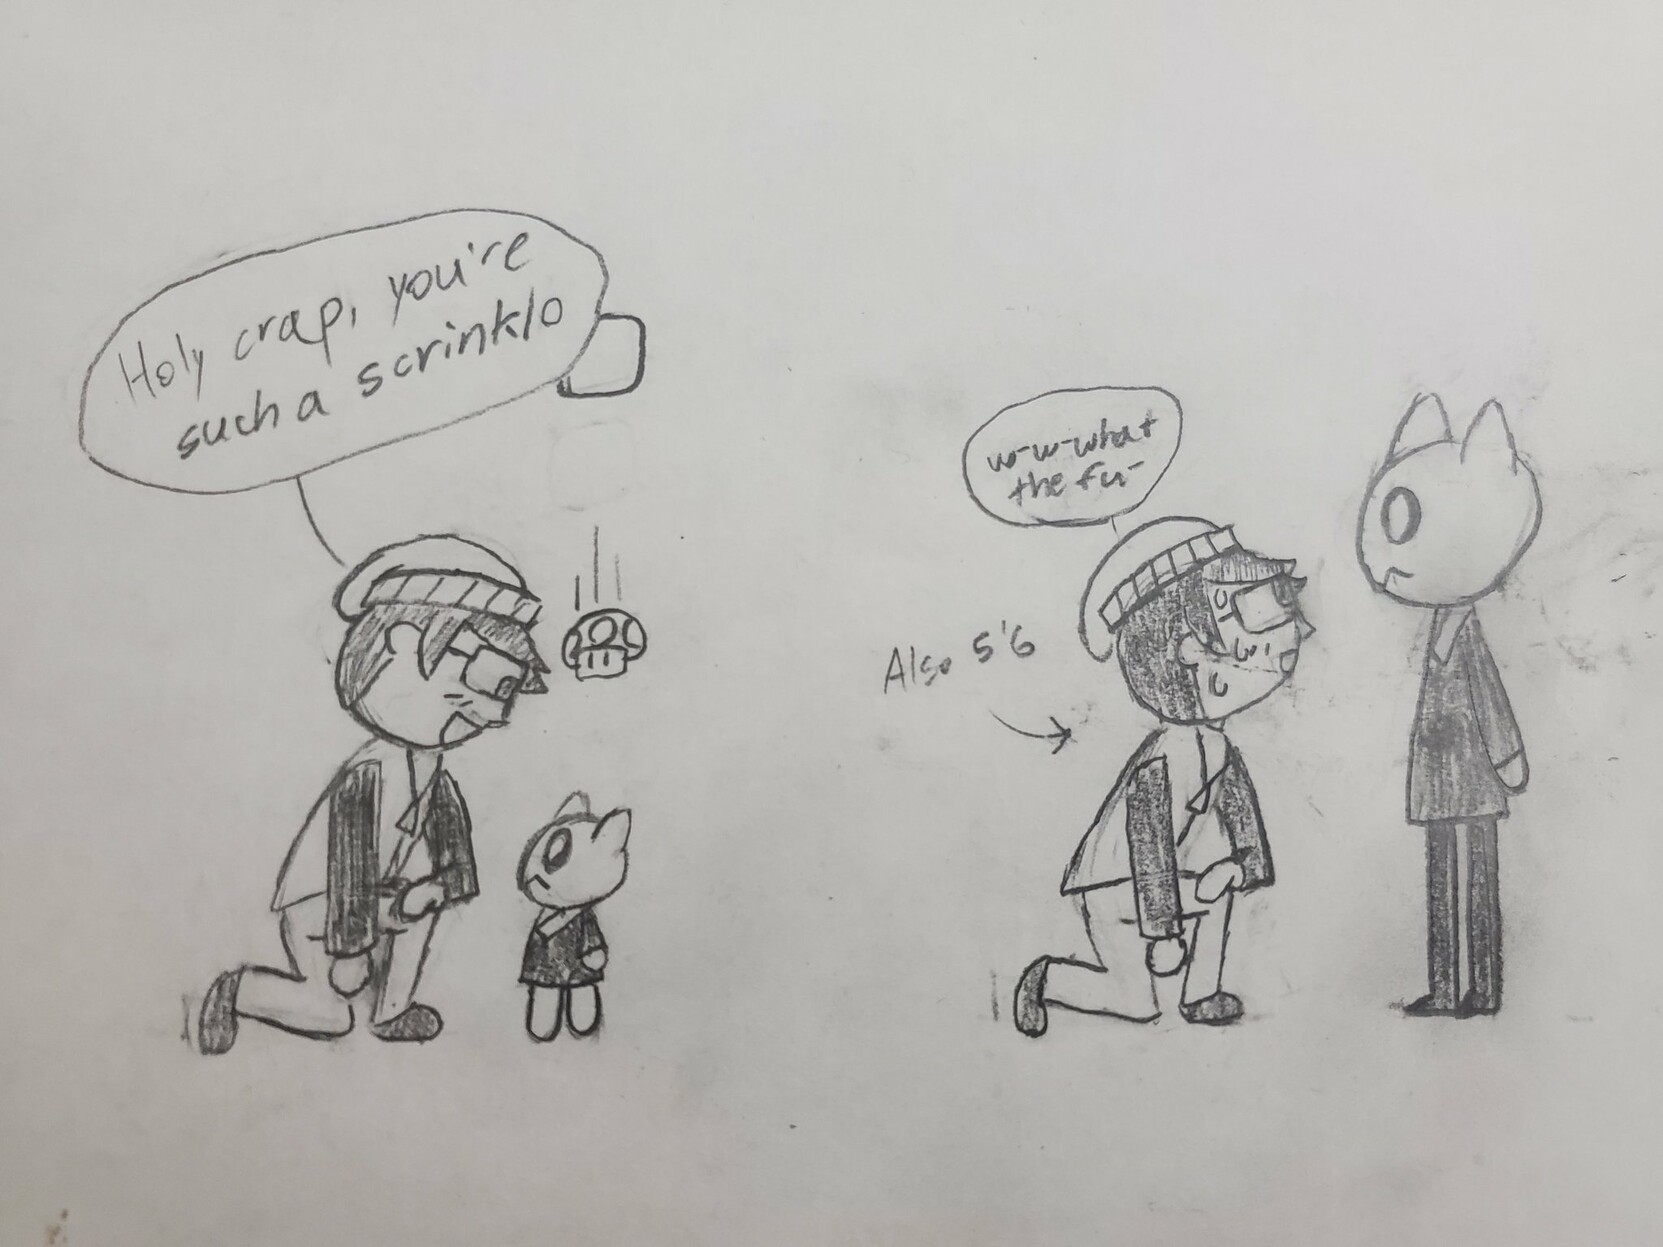 Holy crap, you're
such a scrinklo
w-w-what
the fu-
Also 5'6